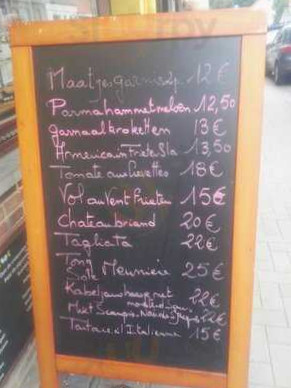 Maatjes garni 2p 12€
Parmaham met meloen 12,50
garnaalkroketten 13€
Americain Friet Sla 13,50
Tomate aux Crevettes 18€
Vol au Vent Frieten 15€
Chateaubriand 20€
Tagliata 22€
Tong
Sole Meunière 25€
Kabeljauwhaasje met 22€
Met Scampis, Noix de St Jacques 22€
Tartare à l'Italienne 15€